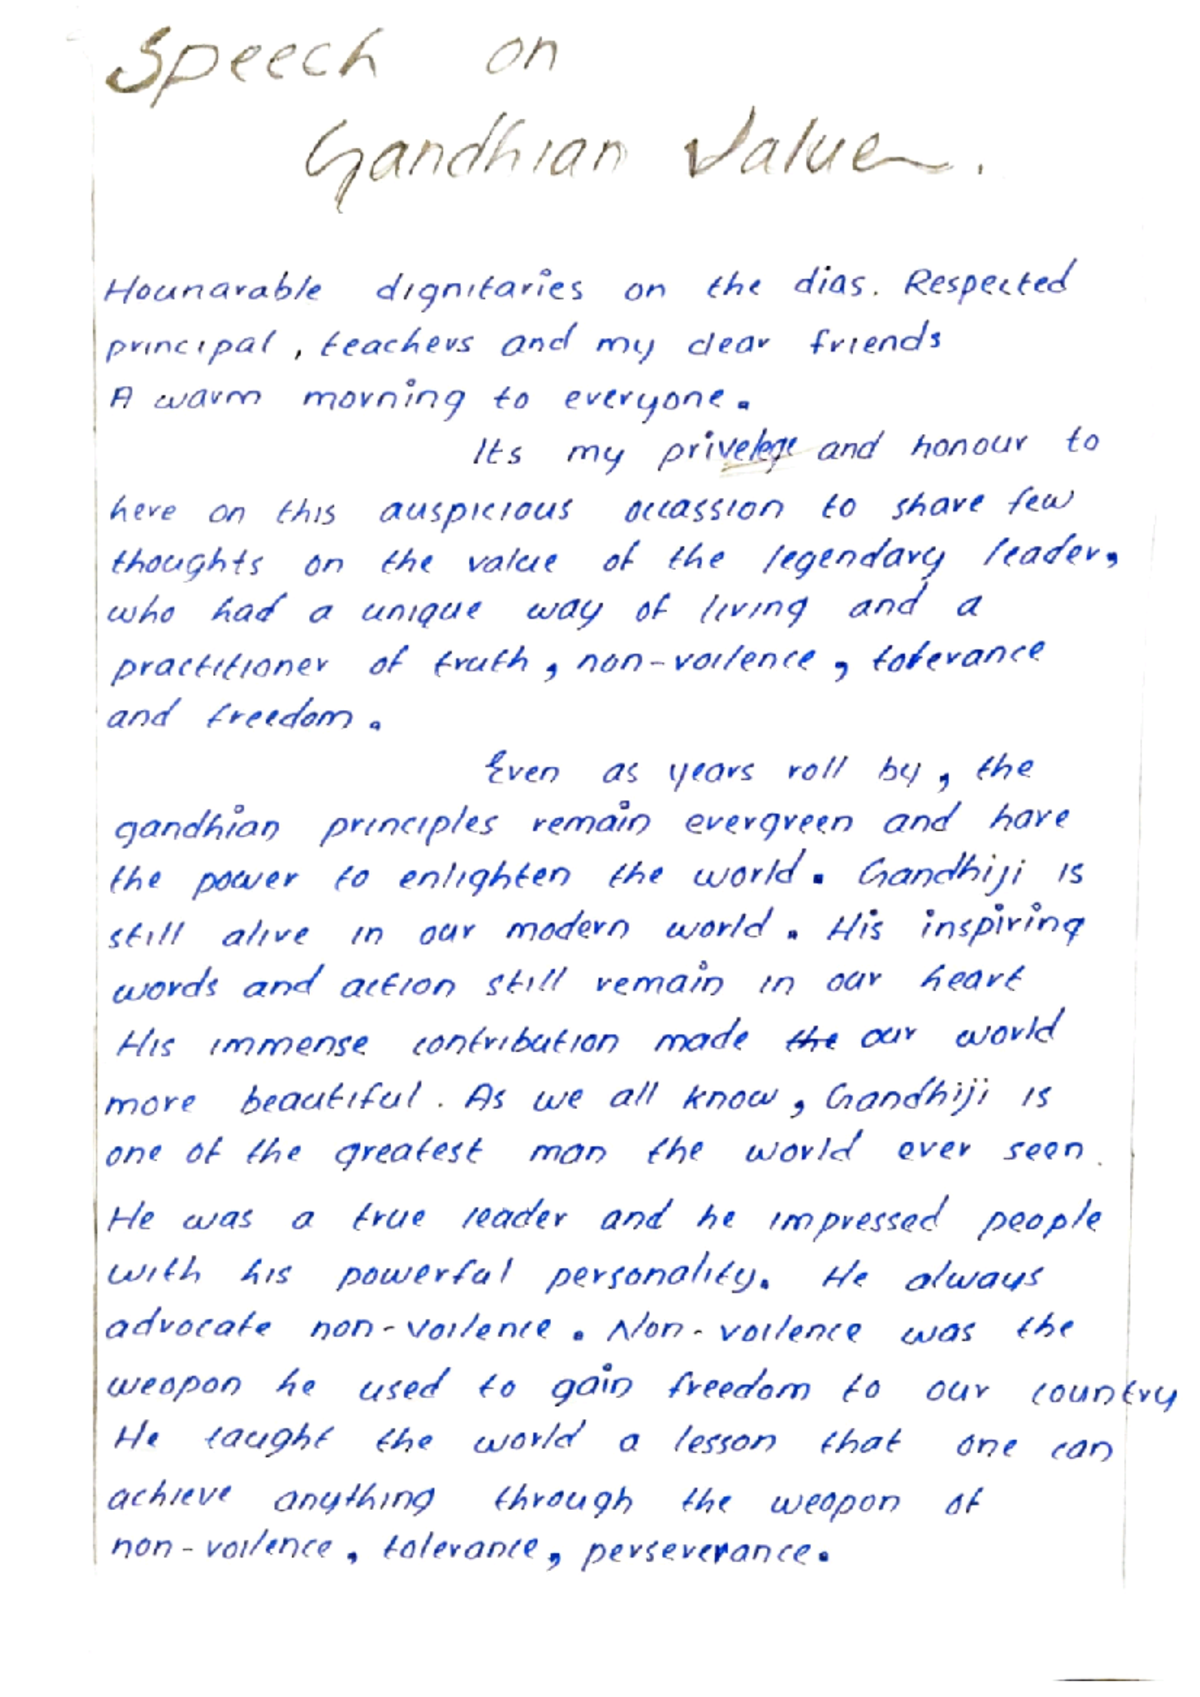 Speech on
Gandhian Value.
Hounarable dignitaries on the dias. Respected
principal, teachers and my dear friends
A warm morning to everyone.
Its my privelege and honour to
here on this auspicious occassion to share few
thoughts on the value of the legendary leader,
who had a unique way of living and a
practitioner of truth, non-voilence, tolerance
and freedom.
Even as years roll by, the
gandhian principles remain evergreen and have
the power to enlighten the world. Gandhiji is
still alive in our modern world. His inspiring
words and action still remain in our heart
His immense contribution made the our world
more beautiful. As we all know, Gandhiji is
one of the greatest man the world ever seen.
He was a true leader and he impressed people
with his powerful personality. He always
advocate non-voilence. Non-voilence was the
weapon he used to gain freedom to our country
He taught the world a lesson that one can
achieve anything through the weapon of
non-voilence, tolerance, perseverance.